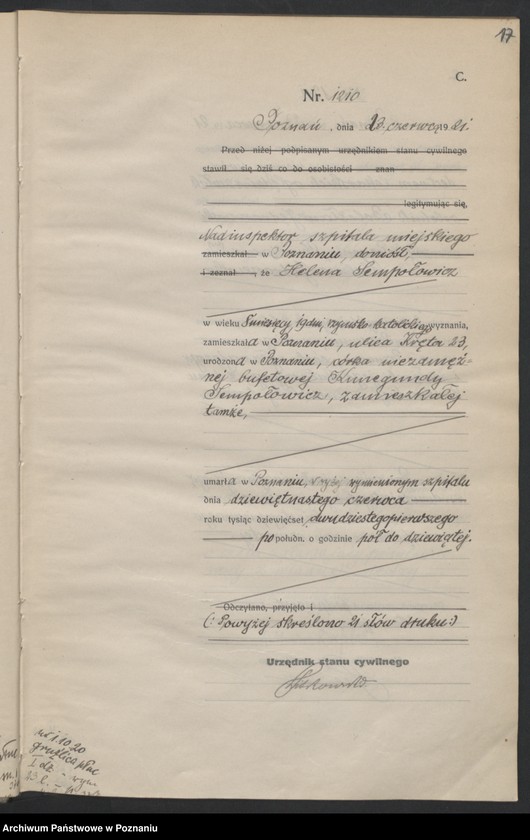 17
C.
Nr. 1210
Poznań, dnia 23. czerwca 1921.
Przed niżej podpisanym urzędnikiem stanu cywilnego
stawił się dziś co do osobistości znan
legitymując się,
Nadinspektor szpitala miejskiego
zamieszkał w Poznaniu, doniósł,
i zeznał, że Helena Sempołowicz
w wieku miesięcy, dni, rzymsko-katolickiego wyznania,
zamieszkała w Poznaniu, ulica Kręta 23,
urodzona w Poznaniu, córka niezamęż-
nej bufetowej Kunegundy
Sempołowicz, zamieszkałej
tamże,
umarła w Poznaniu, wyżej wymienionym szpitalu
dnia dziewiętnastego czerwca
roku tysiąc dziewięćset dwudziestegopierwszego
po połudn. o godzinie pół do dziewiątej.
Odczytano, przyjęto i
(: Powyżej skreślono 21 słów druku :)
Urzędnik stanu cywilnego
ur 1.10.20
gruźlica płuc
Archiwum Państwowe w Poznaniu